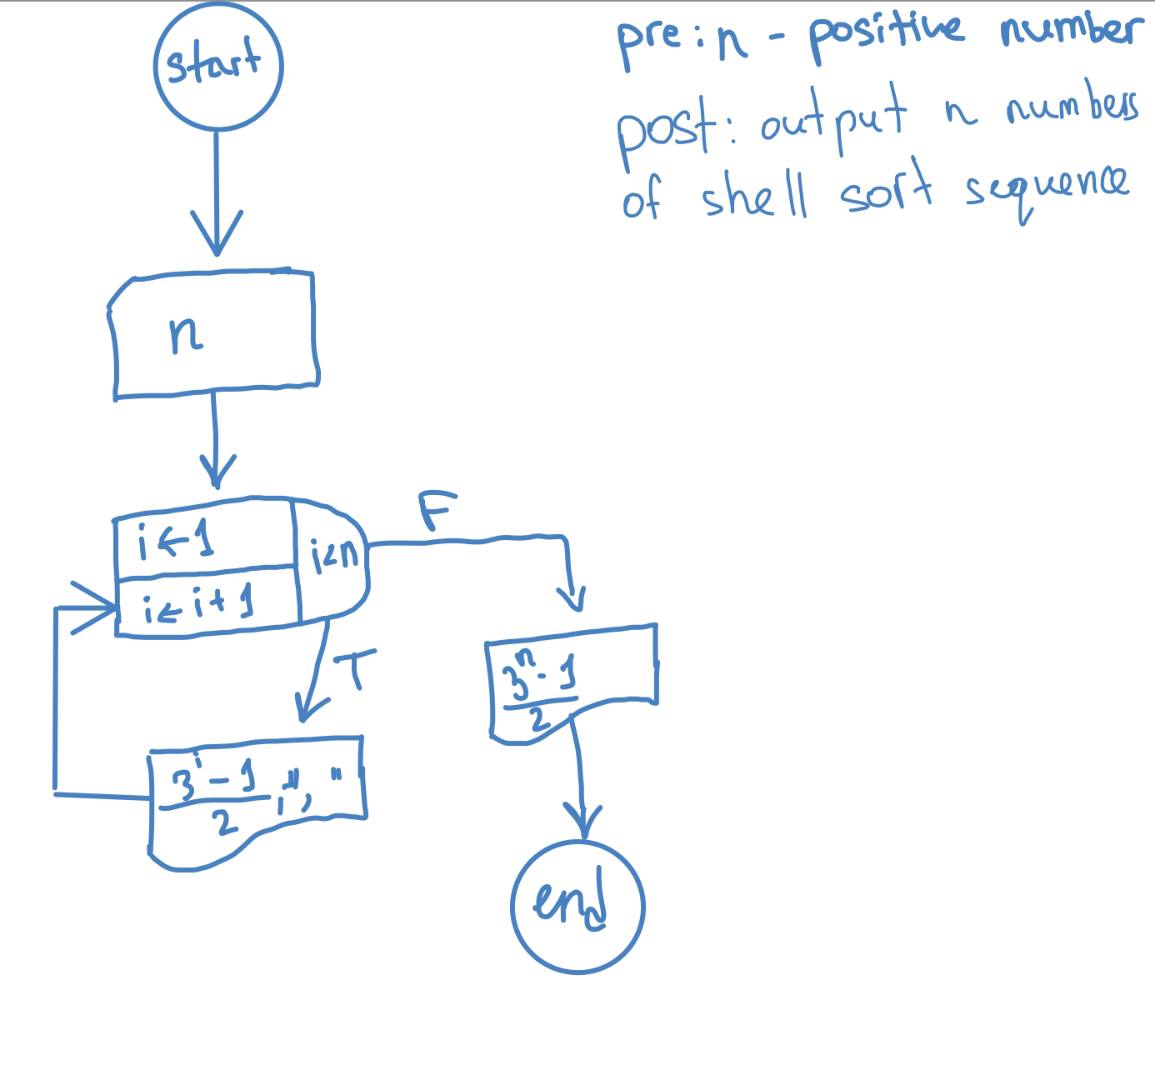 start
pre: n - positive number
post: output n numbers
of shell sort sequence
n
i ← 1
i ← i + 1
i < n
F
T
3^n - 1
2
3^i - 1
2
, ", "
end